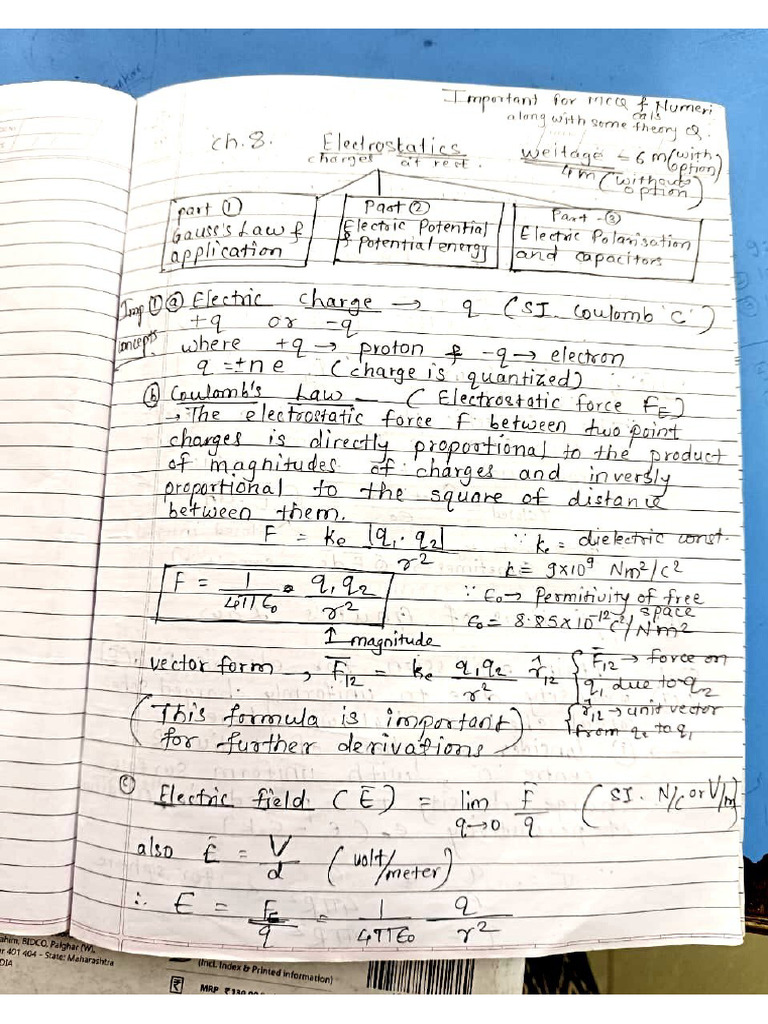 Important for MCQ & Numericals
along with some theory Q.
ch. 8. Electrostatics
charges at rest.
weitage - 6m (with option)
4m (without option)
Part ①
Gauss's Law &
application
Part ②
Electric Potential
& Potential energy
Part - ③
Electric Polarisation
and capacitors
Imp concepts
① ⓐ Electric charge → q (SI. Coulomb 'C')
+q or -q
where +q → proton & -q → electron
q = ±n e (charge is quantized)
ⓑ Coulomb's Law — (Electrostatic force FE)
→ The electrostatic force F between two point
charges is directly proportional to the product
of magnitudes of charges and inversly
proportional to the square of distance
between them.
F = ke |q1 . q2| / r² ∵ ke = dielectric const.
k = 9×10⁹ Nm²/c²
F = 1/4πε0 • q1 q2 / r² ∵ ε0 → Permitivity of free space
ε0 = 8.85×10⁻¹² c²/Nm²
↑ magnitude
vector form, F̄12 = ke q1q2 / r² r̂12 { F̄12 → force on
q1 due to q2
{ r̂12 → unit vector
from q2 to q1
(This formula is important
for further derivations)
ⓒ Electric field (Ē) = lim q→0 F̄/q (SI. N/c or V/m)
also Ē = V/d (volt/meter)
∴ E = FE/q = 1/4πε0 q/r²
BIDCO, Palghar (W),
401 404 - State: Maharashtra
(Incl. Index & Printed information)
₹ MRP ₹